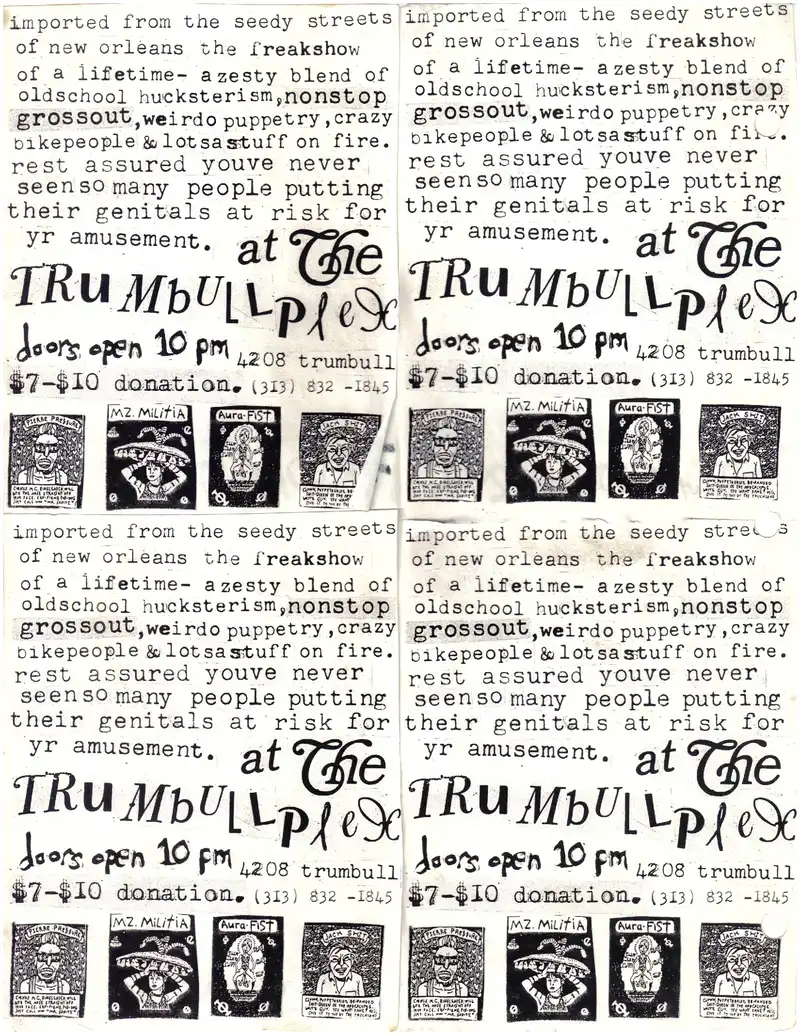 imported from the seedy streets
of new orleans the freakshow
of a lifetime- a zesty blend of
oldschool hucksterism, nonstop
grossout, weirdo puppetry, crazy
bikepeople & lotsa stuff on fire.
rest assured youve never
seen so many people putting
their genitals at risk for
yr amusement. at The
TRuMbULLPlex
doors open 10 pm 4208 trumbull
$7-$10 donation. (313) 832 -1845
PIERRE PRESSURE MZ. MiLiTiA Aura·FiST JACK SHIT
imported from the seedy streets
of new orleans the freakshow
of a lifetime- a zesty blend of
oldschool hucksterism, nonstop
grossout, weirdo puppetry, crazy
bikepeople & lotsa stuff on fire.
rest assured youve never
seen so many people putting
their genitals at risk for
yr amusement. at The
TRuMbULLPlex
doors open 10 pm 4208 trumbull
$7-$10 donation. (313) 832 -1845
PIERRE PRESSURE MZ. MiLiTiA Aura·FiST JACK SHIT
imported from the seedy streets
of new orleans the freakshow
of a lifetime- a zesty blend of
oldschool hucksterism, nonstop
grossout, weirdo puppetry, crazy
bikepeople & lotsa stuff on fire.
rest assured youve never
seen so many people putting
their genitals at risk for
yr amusement. at The
TRuMbULLPlex
doors open 10 pm 4208 trumbull
$7-$10 donation. (313) 832 -1845
PIERRE PRESSURE MZ. MiLiTiA Aura·FiST JACK SHIT
imported from the seedy streets
of new orleans the freakshow
of a lifetime- a zesty blend of
oldschool hucksterism, nonstop
grossout, weirdo puppetry, crazy
bikepeople & lotsa stuff on fire.
rest assured youve never
seen so many people putting
their genitals at risk for
yr amusement. at The
TRuMbULLPlex
doors open 10 pm 4208 trumbull
$7-$10 donation. (313) 832 -1845
PIERRE PRESSURE MZ. MiLiTiA Aura·FiST JACK SHIT